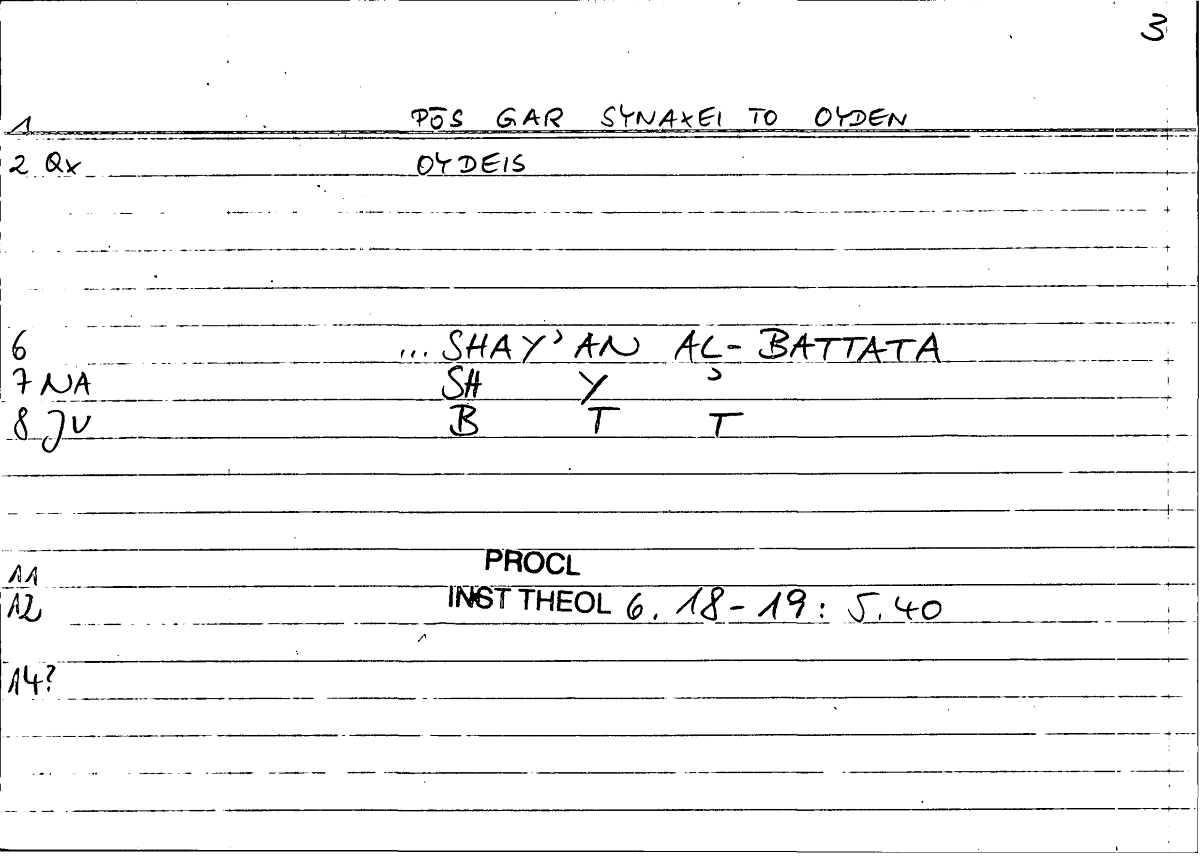 3
1 PŌS GAR SYNAXEI TO OYDEN
2 Qx OYDEIS
6 ... SHAY'AN AL-BATTATA
7 NA SH Y ʾ
8 JV B T T
11 PROCL
12 INST THEOL 6. 18-19: 5.40
14?